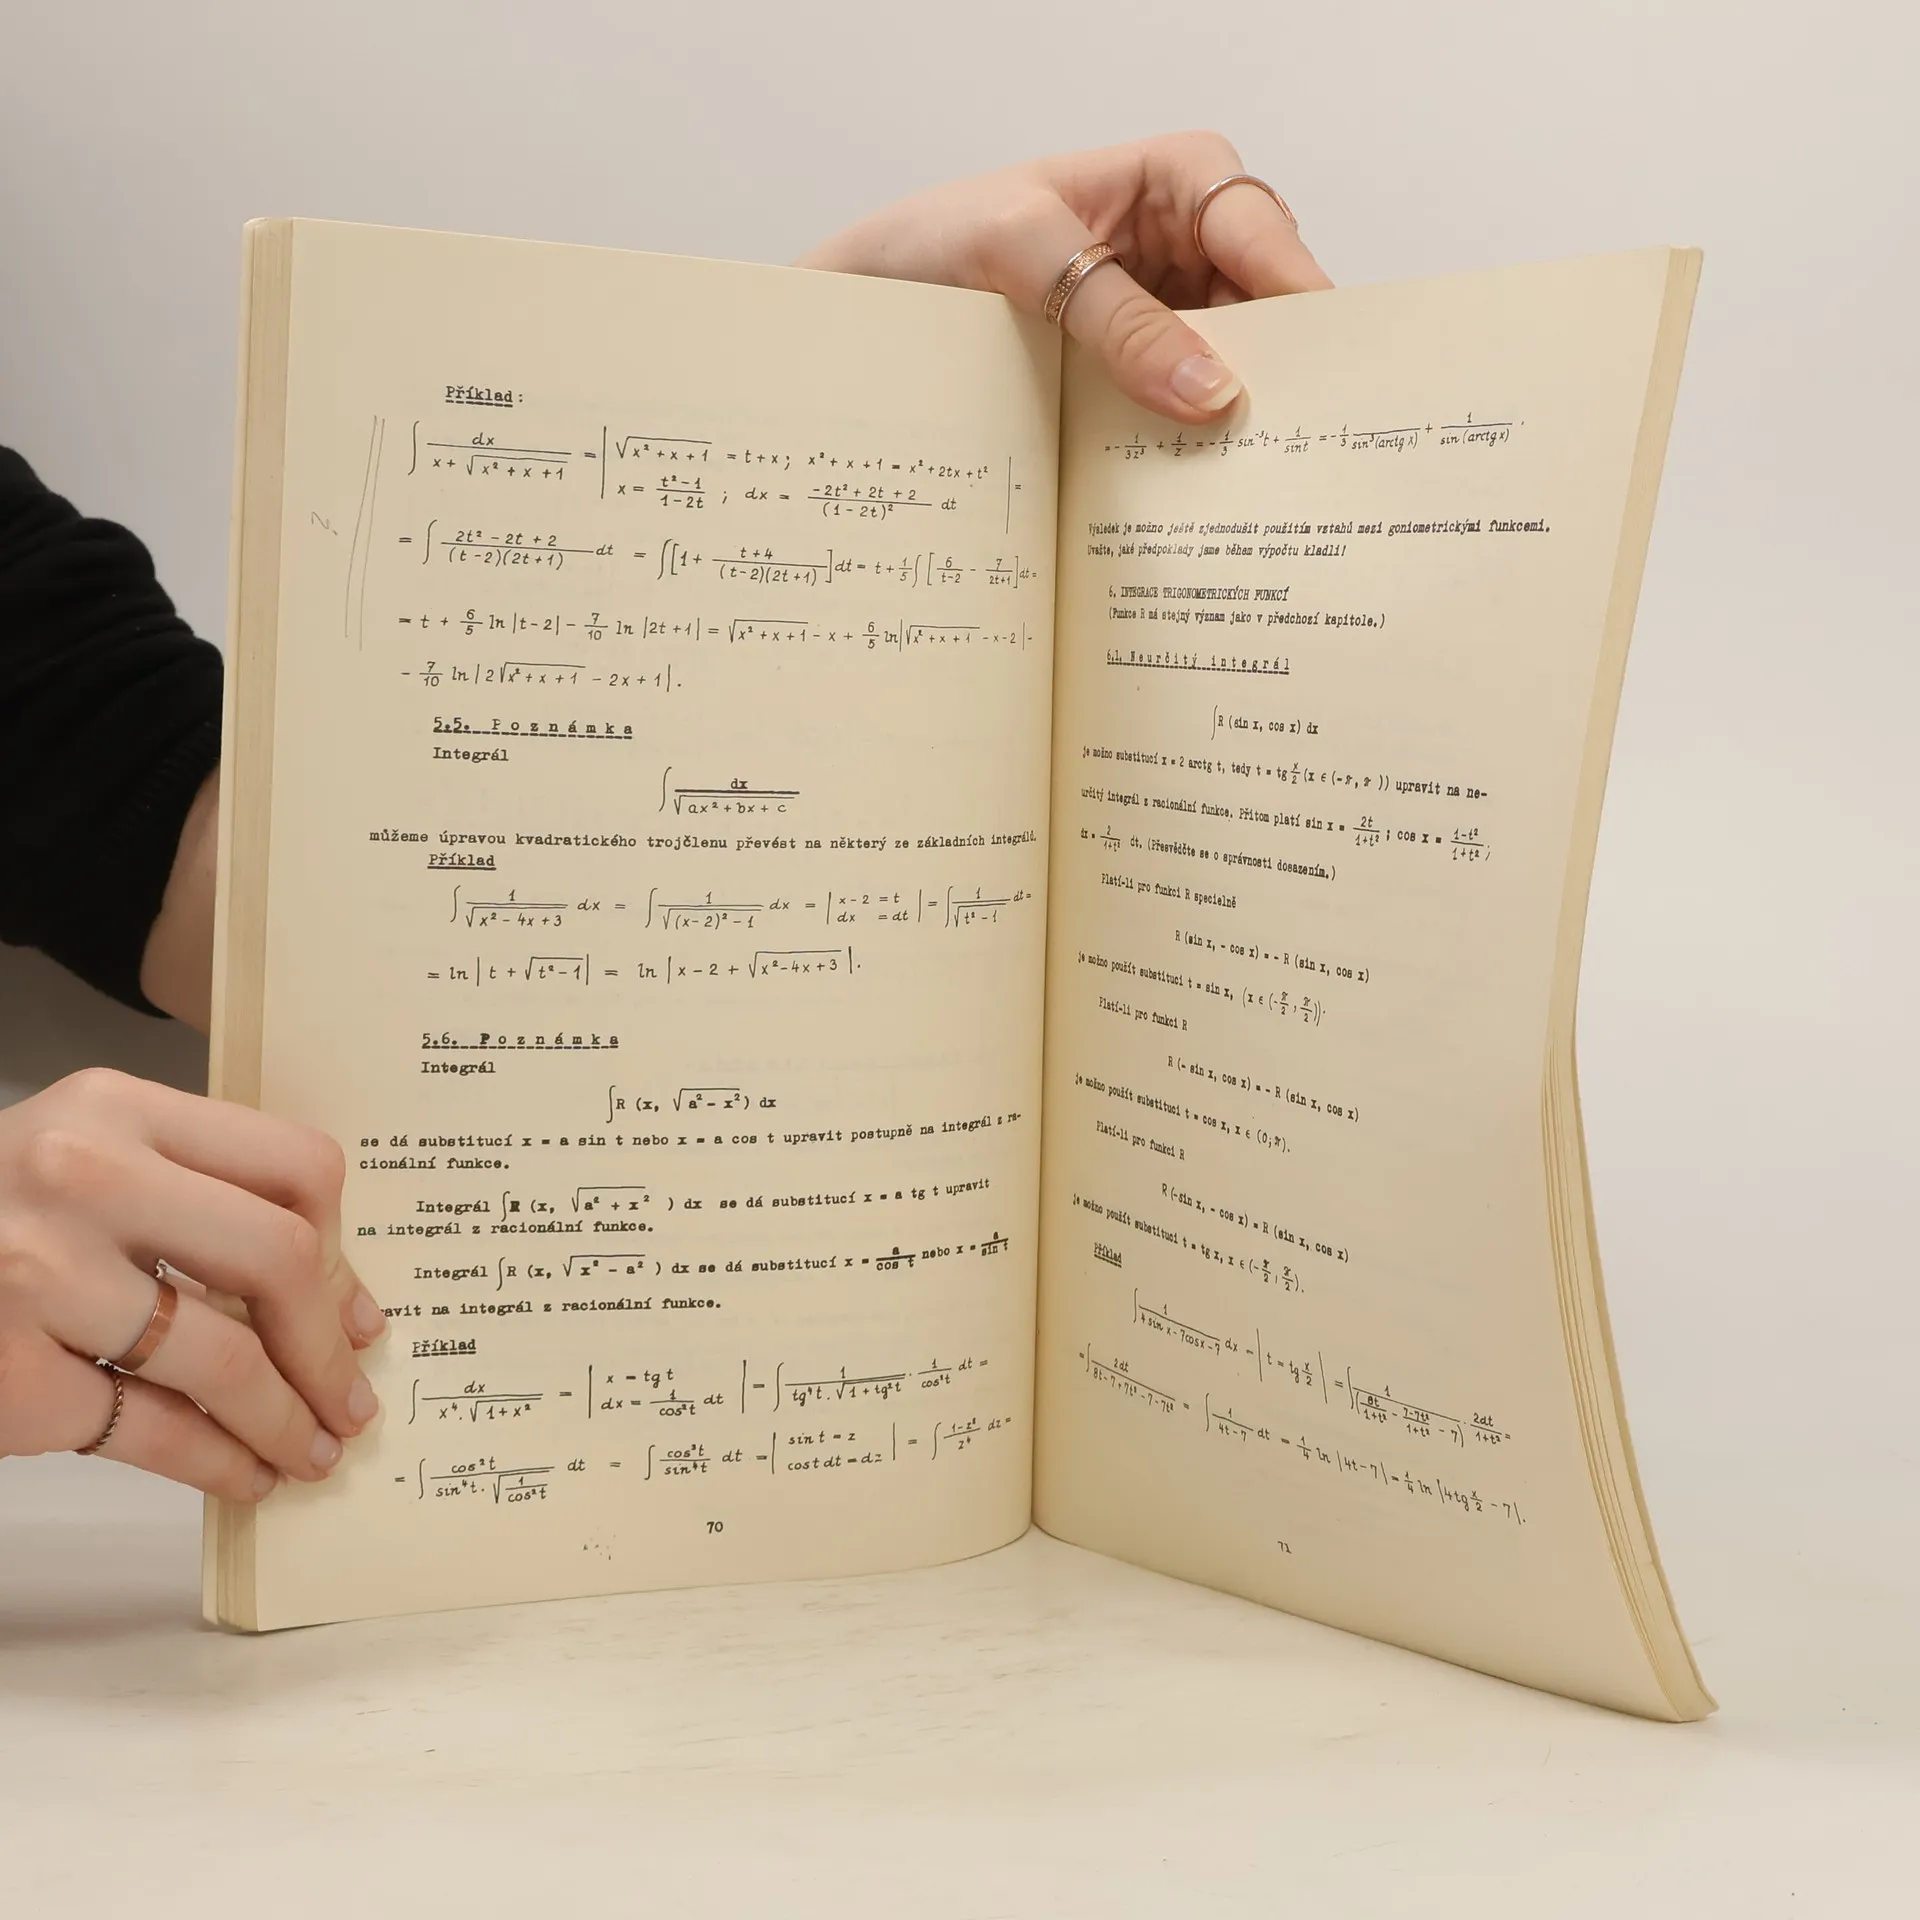 Příklad:
∫ dx / (x + √(x² + x + 1)) = | √(x² + x + 1) = t + x ; x² + x + 1 = x² + 2tx + t² | =
| x = (t² - 1) / (1 - 2t) ; dx = (-2t² + 2t + 2) / (1 - 2t)² dt |
= ∫ (2t² - 2t + 2) / ((t - 2)(2t + 1)) dt = ∫ [1 + (t + 4) / ((t - 2)(2t + 1))] dt = t + 1/5 ∫ [6/(t-2) - 7/(2t+1)] dt =
= t + 6/5 ln |t - 2| - 7/10 ln |2t + 1| = √(x² + x + 1) - x + 6/5 ln |√(x² + x + 1) - x - 2| -
- 7/10 ln | 2√(x² + x + 1) - 2x + 1 | .
5.5. Poznámka
Integrál
∫ dx / √(ax² + bx + c)
můžeme úpravou kvadratického trojčlenu převést na některý ze základních integrálů.
Příklad
∫ 1 / √(x² - 4x + 3) dx = ∫ 1 / √((x - 2)² - 1) dx = | x - 2 = t | = ∫ 1 / √(t² - 1) dt =
| dx = dt |
= ln | t + √(t² - 1) | = ln | x - 2 + √(x² - 4x + 3) | .
5.6. Poznámka
Integrál
∫R (x, √(a² - x²)) dx
se dá substitucí x = a sin t nebo x = a cos t upravit postupně na integrál z ra-
cionální funkce.
Integrál ∫R (x, √(a² + x²) ) dx se dá substitucí x = a tg t upravit
na integrál z racionální funkce.
Integrál ∫R (x, √(x² - a²) ) dx se dá substitucí x = a/cos t nebo x = a/sin t
ravit na integrál z racionální funkce.
Příklad
∫ dx / (x⁴ . √(1 + x²)) = | x = tg t | = ∫ 1 / (tg⁴t . √(1 + tg²t)) . 1/cos²t dt =
| dx = 1/cos²t dt |
= ∫ cos²t / (sin⁴t . √(1/cos²t)) dt = ∫ cos³t / sin⁴t dt = | sin t = z | = ∫ (1 - z²) / z⁴ dz =
| cos t dt = dz |
70
= - 1/3z³ + 1/z = - 1/3 sin⁻³t + 1/sin t = - 1/3 1/sin³(arctg x) + 1/sin (arctg x) .
Výsledek je možno ještě zjednodušit použitím vztahů mezi goniometrickými funkcemi.
Uvažte, jaké předpoklady jsme během výpočtu kladli!
6. INTEGRACE TRIGONOMETRICKÝCH FUNKCÍ
(Funkce R má stejný význam jako v předchozí kapitole.)
6.1. Neurčitý integrál
∫R (sin x, cos x) dx
je možno substitucí x = 2 arctg t, tedy t = tg x/2 (x ∈ (-π, π )) upravit na ne-
určitý integrál z racionální funkce. Přitom platí sin x = 2t/(1+t²) ; cos x = (1-t²)/(1+t²) ;
dx = 2/(1+t²) dt. (Přesvědčte se o správnosti dosazením.)
Platí-li pro funkci R specielně
R (sin x, - cos x) = - R (sin x, cos x)
je možno použít substituci t = sin x, (x ∈ (-π/2 , π/2)).
Platí-li pro funkci R
R (- sin x, cos x) = - R (sin x, cos x)
je možno použít substituci t = cos x, x ∈ (0; π).
Platí-li pro funkci R
R (-sin x, - cos x) = R (sin x, cos x)
je možno použít substituci t = tg x, x ∈ (-π/2 , π/2).
Příklad
∫ 1 / (4 sin x - 7cos x - 7) dx = | t = tg x/2 | = ∫ 1 / (8t/(1+t²) - (7-7t²)/(1+t²) - 7) . 2dt/(1+t²) =
= ∫ 2dt / (8t - 7 + 7t² - 7 - 7t²) = ∫ 1/(4t - 7) dt = 1/4 ln |4t - 7| = 1/4 ln |4tg x/2 - 7| .
71